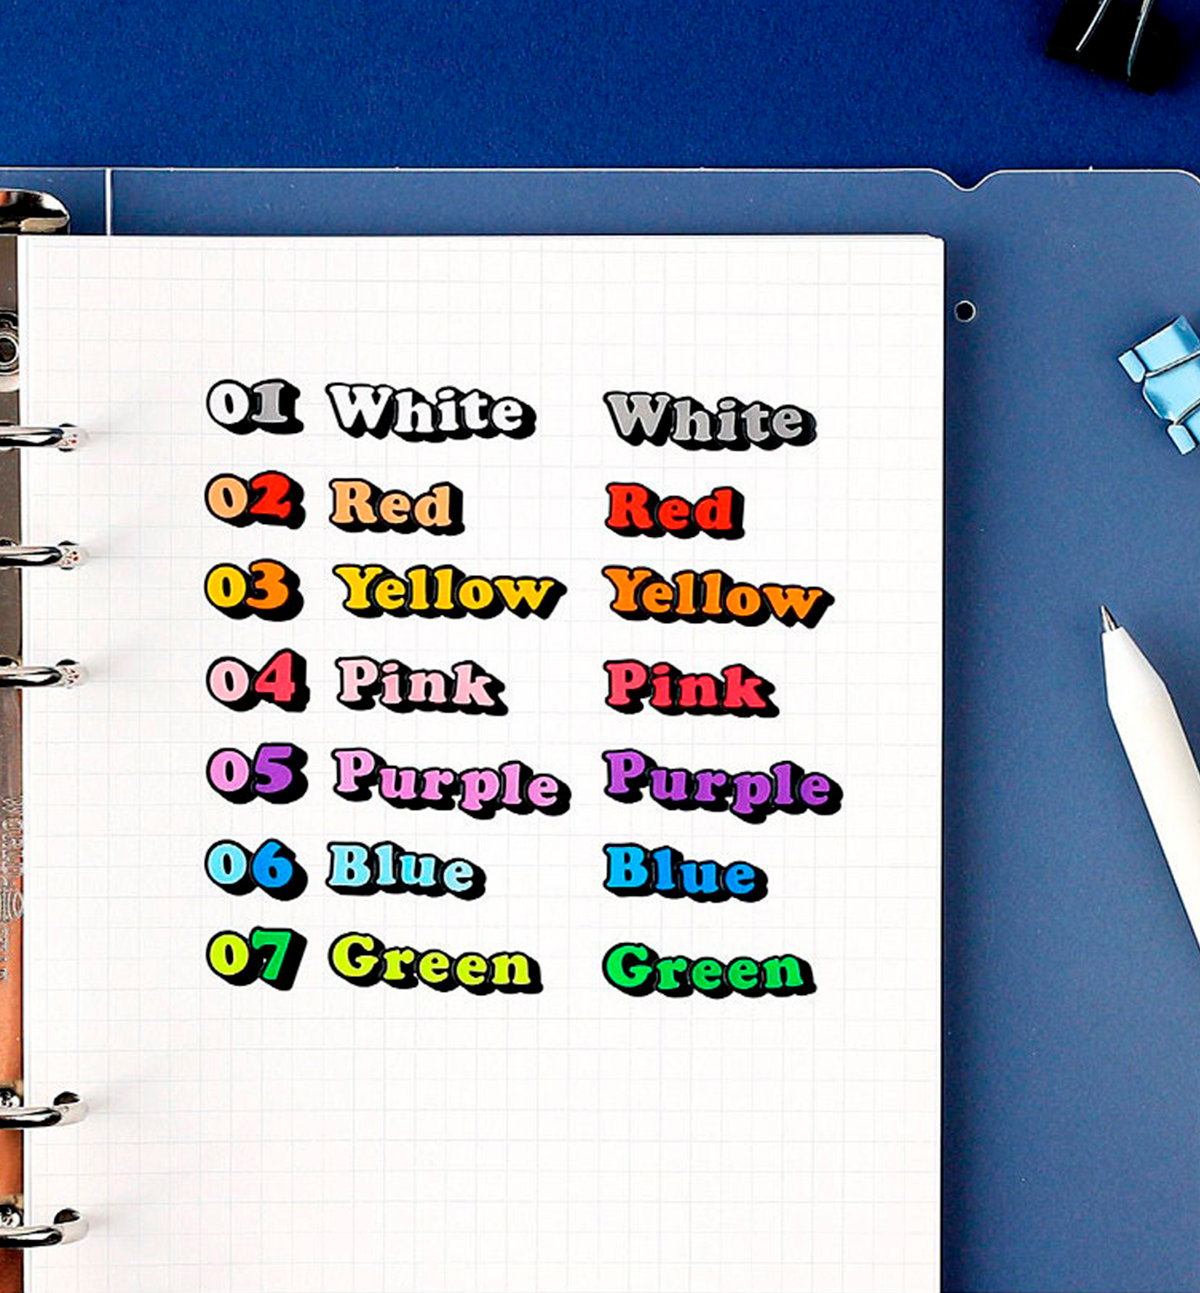 01 White White
02 Red Red
03 Yellow Yellow
04 Pink Pink
05 Purple Purple
06 Blue Blue
07 Green Green